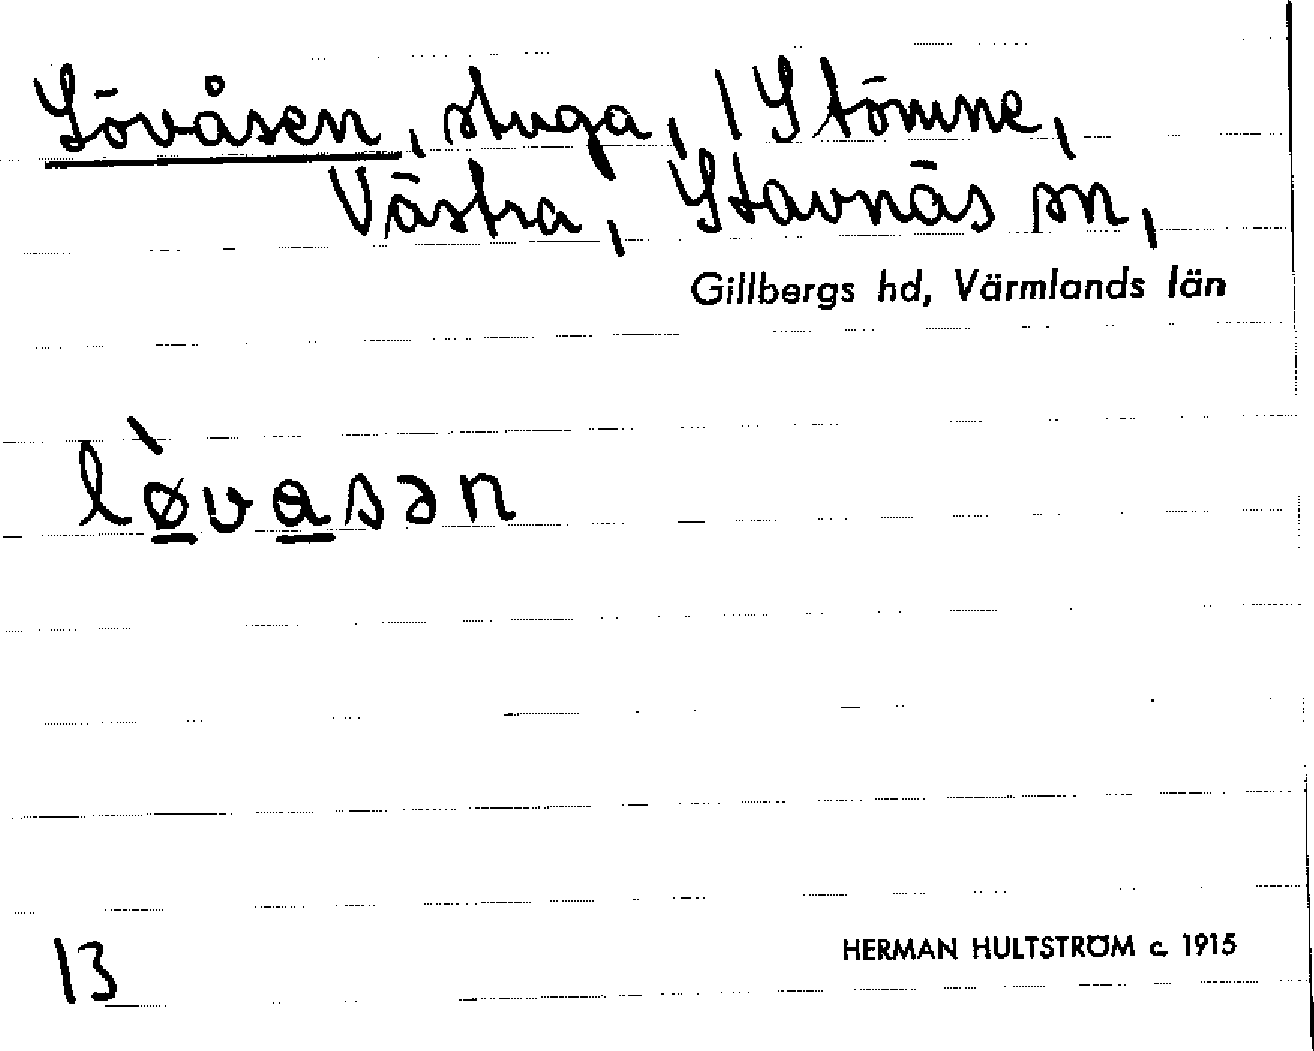 Lövåsen, stuga, 1 Stömne,
Västra, Stavnäs sn,
Gillbergs hd, Värmlands län
lø̱̀va̱sən
13
HERMAN HULTSTRÖM c. 1915